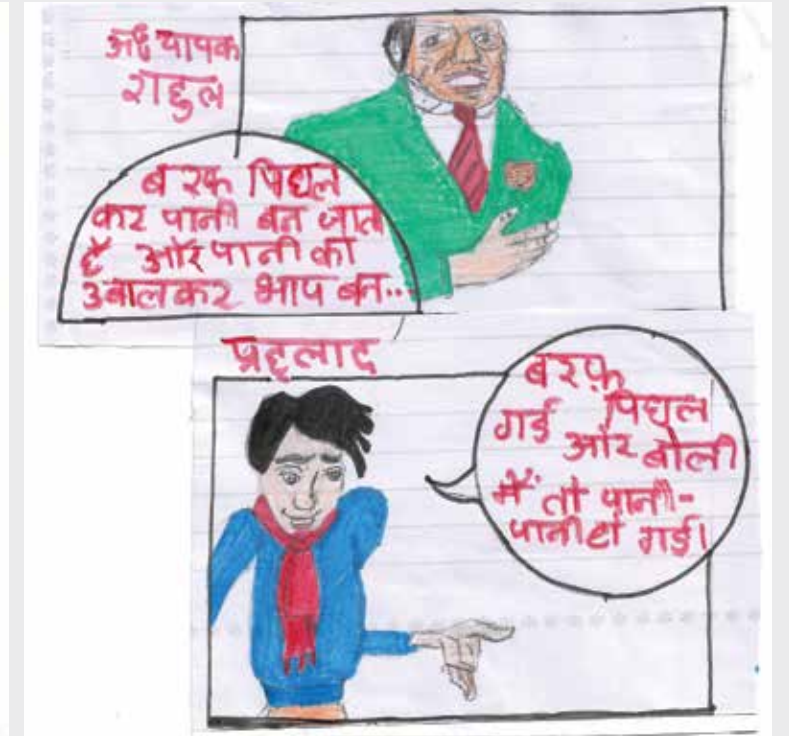 अध्यापक
राहुल
बरफ पिघल
कर पानी बन जाता
है और पानी को
उबालकर भाप बन...
प्रहलाद
बरफ़
गई पिघल
और बोली
मैं तो पानी-
पानी हो गई।